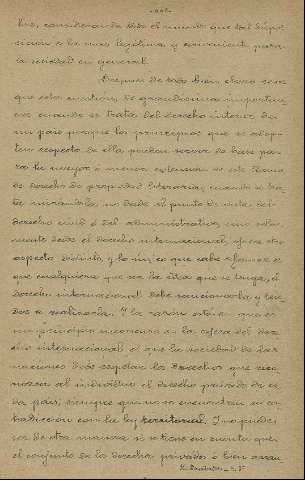 tivo, considerando todo el mundo que tal suposi
cion es la mas legitima y conveniente para
la sociedad en general.
Despues de todo bien claro se ve
que esta cuestion, de grandisima importan
cia cuando se trata del derecho interno de
un pais porque los principios que se adop
ten respecto de ella pueden servir de base pa
ra la mayor ó menor extension de este
de derecho de propiedad literaria, cuando se tra
ta mirandola, no desde el punto de vista del
derecho civil ó del administrativo, sino sola
mente desde el derecho internacional, ofrece otro
aspecto distinto y lo único que cabe afirmar es
que cualquiera que sea la idea que se tenga, el
derecho internacional debe sancionarla y ten
der á realizarla. Y la razon está en que es
un principio inconcuso en la esfera del dere
cho internacional el que la sociedad de las
naciones debe respetar los derechos que reco
nozca al individuo el derecho privado de ca
da pais, siempre que no se encuentren en con
tradiccion con la ley territorial. Y no puede
ser de otra manera si se tiene en cuenta que
el conjunto de los derechos privados ó bien